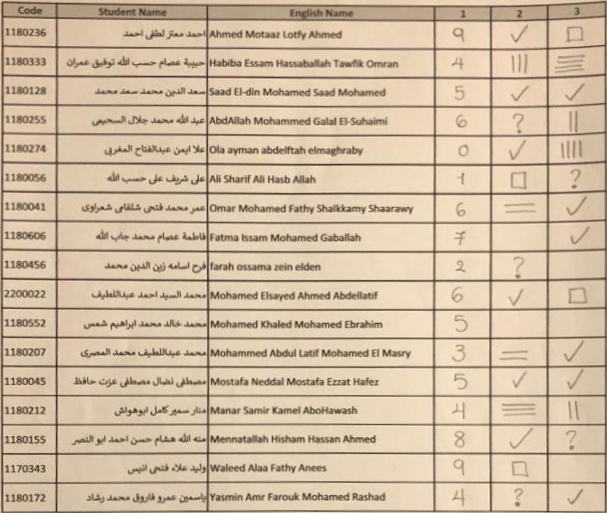 Code Student Name English Name 1 2 3
1180236 احمد معتز لطفى احمد Ahmed Motaaz Lotfy Ahmed 9 ✓ □
1180333 حبيبة عصام حسب الله توفيق عمران Habiba Essam Hassaballah Tawfik Omran 4 ||| ≡
1180128 سعد الدين محمد سعد محمد Saad El-din Mohamed Saad Mohamed 5 ✓ ✓
1180255 عبد الله محمد جلال السحيمى AbdAllah Mohammed Galal El-Suhaimi 6 ? ||
1180274 علا ايمن عبدالفتاح المغربي Ola ayman abdelftah elmaghraby 0 ✓ ||||
1180056 على شريف على حسب الله Ali Sharif Ali Hasb Allah 1 □ ?
1180041 عمر محمد فتحى شلقامى شعراوى Omar Mohamed Fathy Shalkkamy Shaarawy 6 = ✓
1180606 فاطمة عصام محمد جاب الله Fatma Issam Mohamed Gaballah 7 ✓
1180456 فرح اسامه زين الدين محمد farah ossama zein elden 2 ?
2200022 محمد السيد احمد عبداللطيف Mohamed Elsayed Ahmed Abdellatif 6 ✓ □
1180552 محمد خالد محمد ابراهيم شمس Mohamed Khaled Mohamed Ebrahim 5
1180207 محمد عبداللطيف محمد المصرى Mohammed Abdul Latif Mohamed El Masry 3 = ✓
1180045 مصطفى نضال مصطفى عزت حافظ Mostafa Neddal Mostafa Ezzat Hafez 5 ✓ ✓
1180212 منار سمير كامل ابوهواش Manar Samir Kamel AboHawash 4 ≡ ||
1180155 منه الله هشام حسن احمد ابو النصر Mennatallah Hisham Hassan Ahmed 8 ✓ ?
1170343 وليد علاء فتحى انيس Waleed Alaa Fathy Anees 9 □
1180172 ياسمين عمرو فاروق محمد رشاد Yasmin Amr Farouk Mohamed Rashad 4 ? ✓